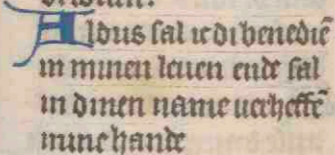 Aldus sal ic di benediē
in minen leuen ende sal
in dinen name uerheffē
mine hande